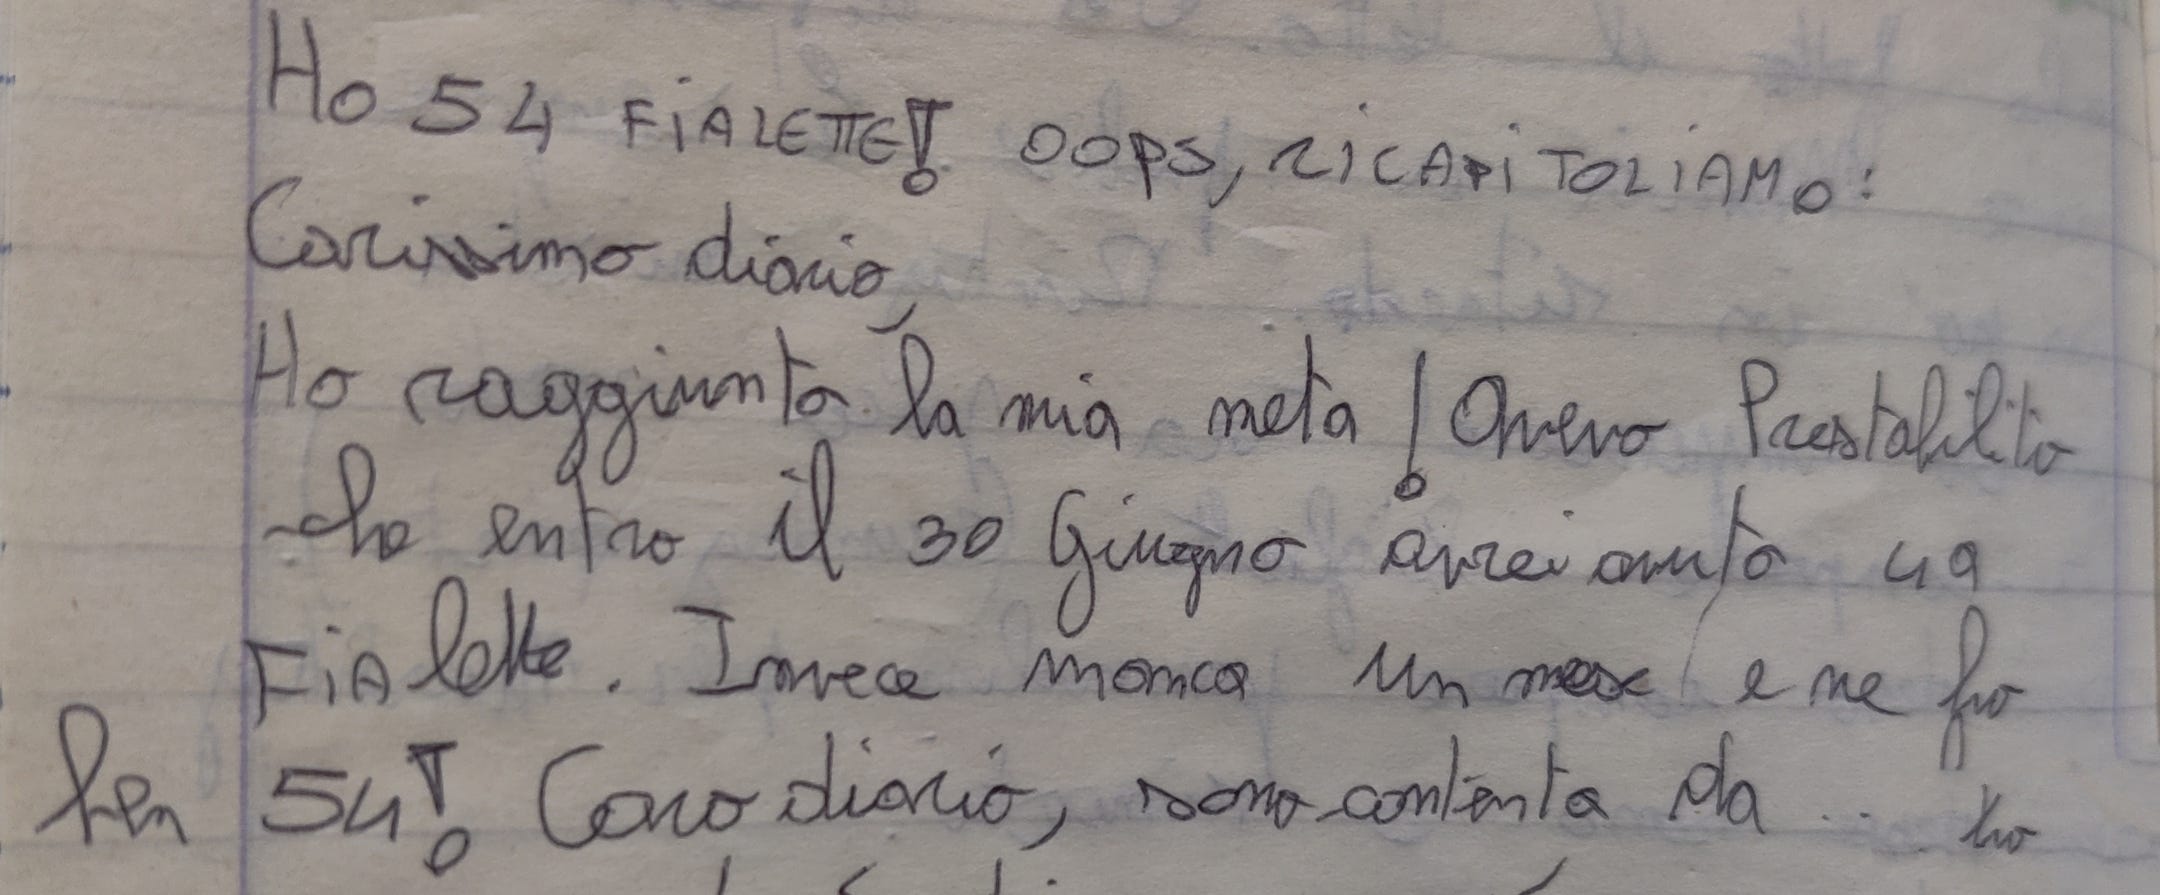 Ho 54 FiALETTE! OOPS, RiCAPiTOLIAMO:
Carissimo diario,
Ho raggiunto la mia meta! Avevo Prestabilito
che entro il 30 Giugno avrei avuto 49
FiAlette. Invece manca un mese e ne ho
ben 54! Caro diario, sono contenta da .. ho